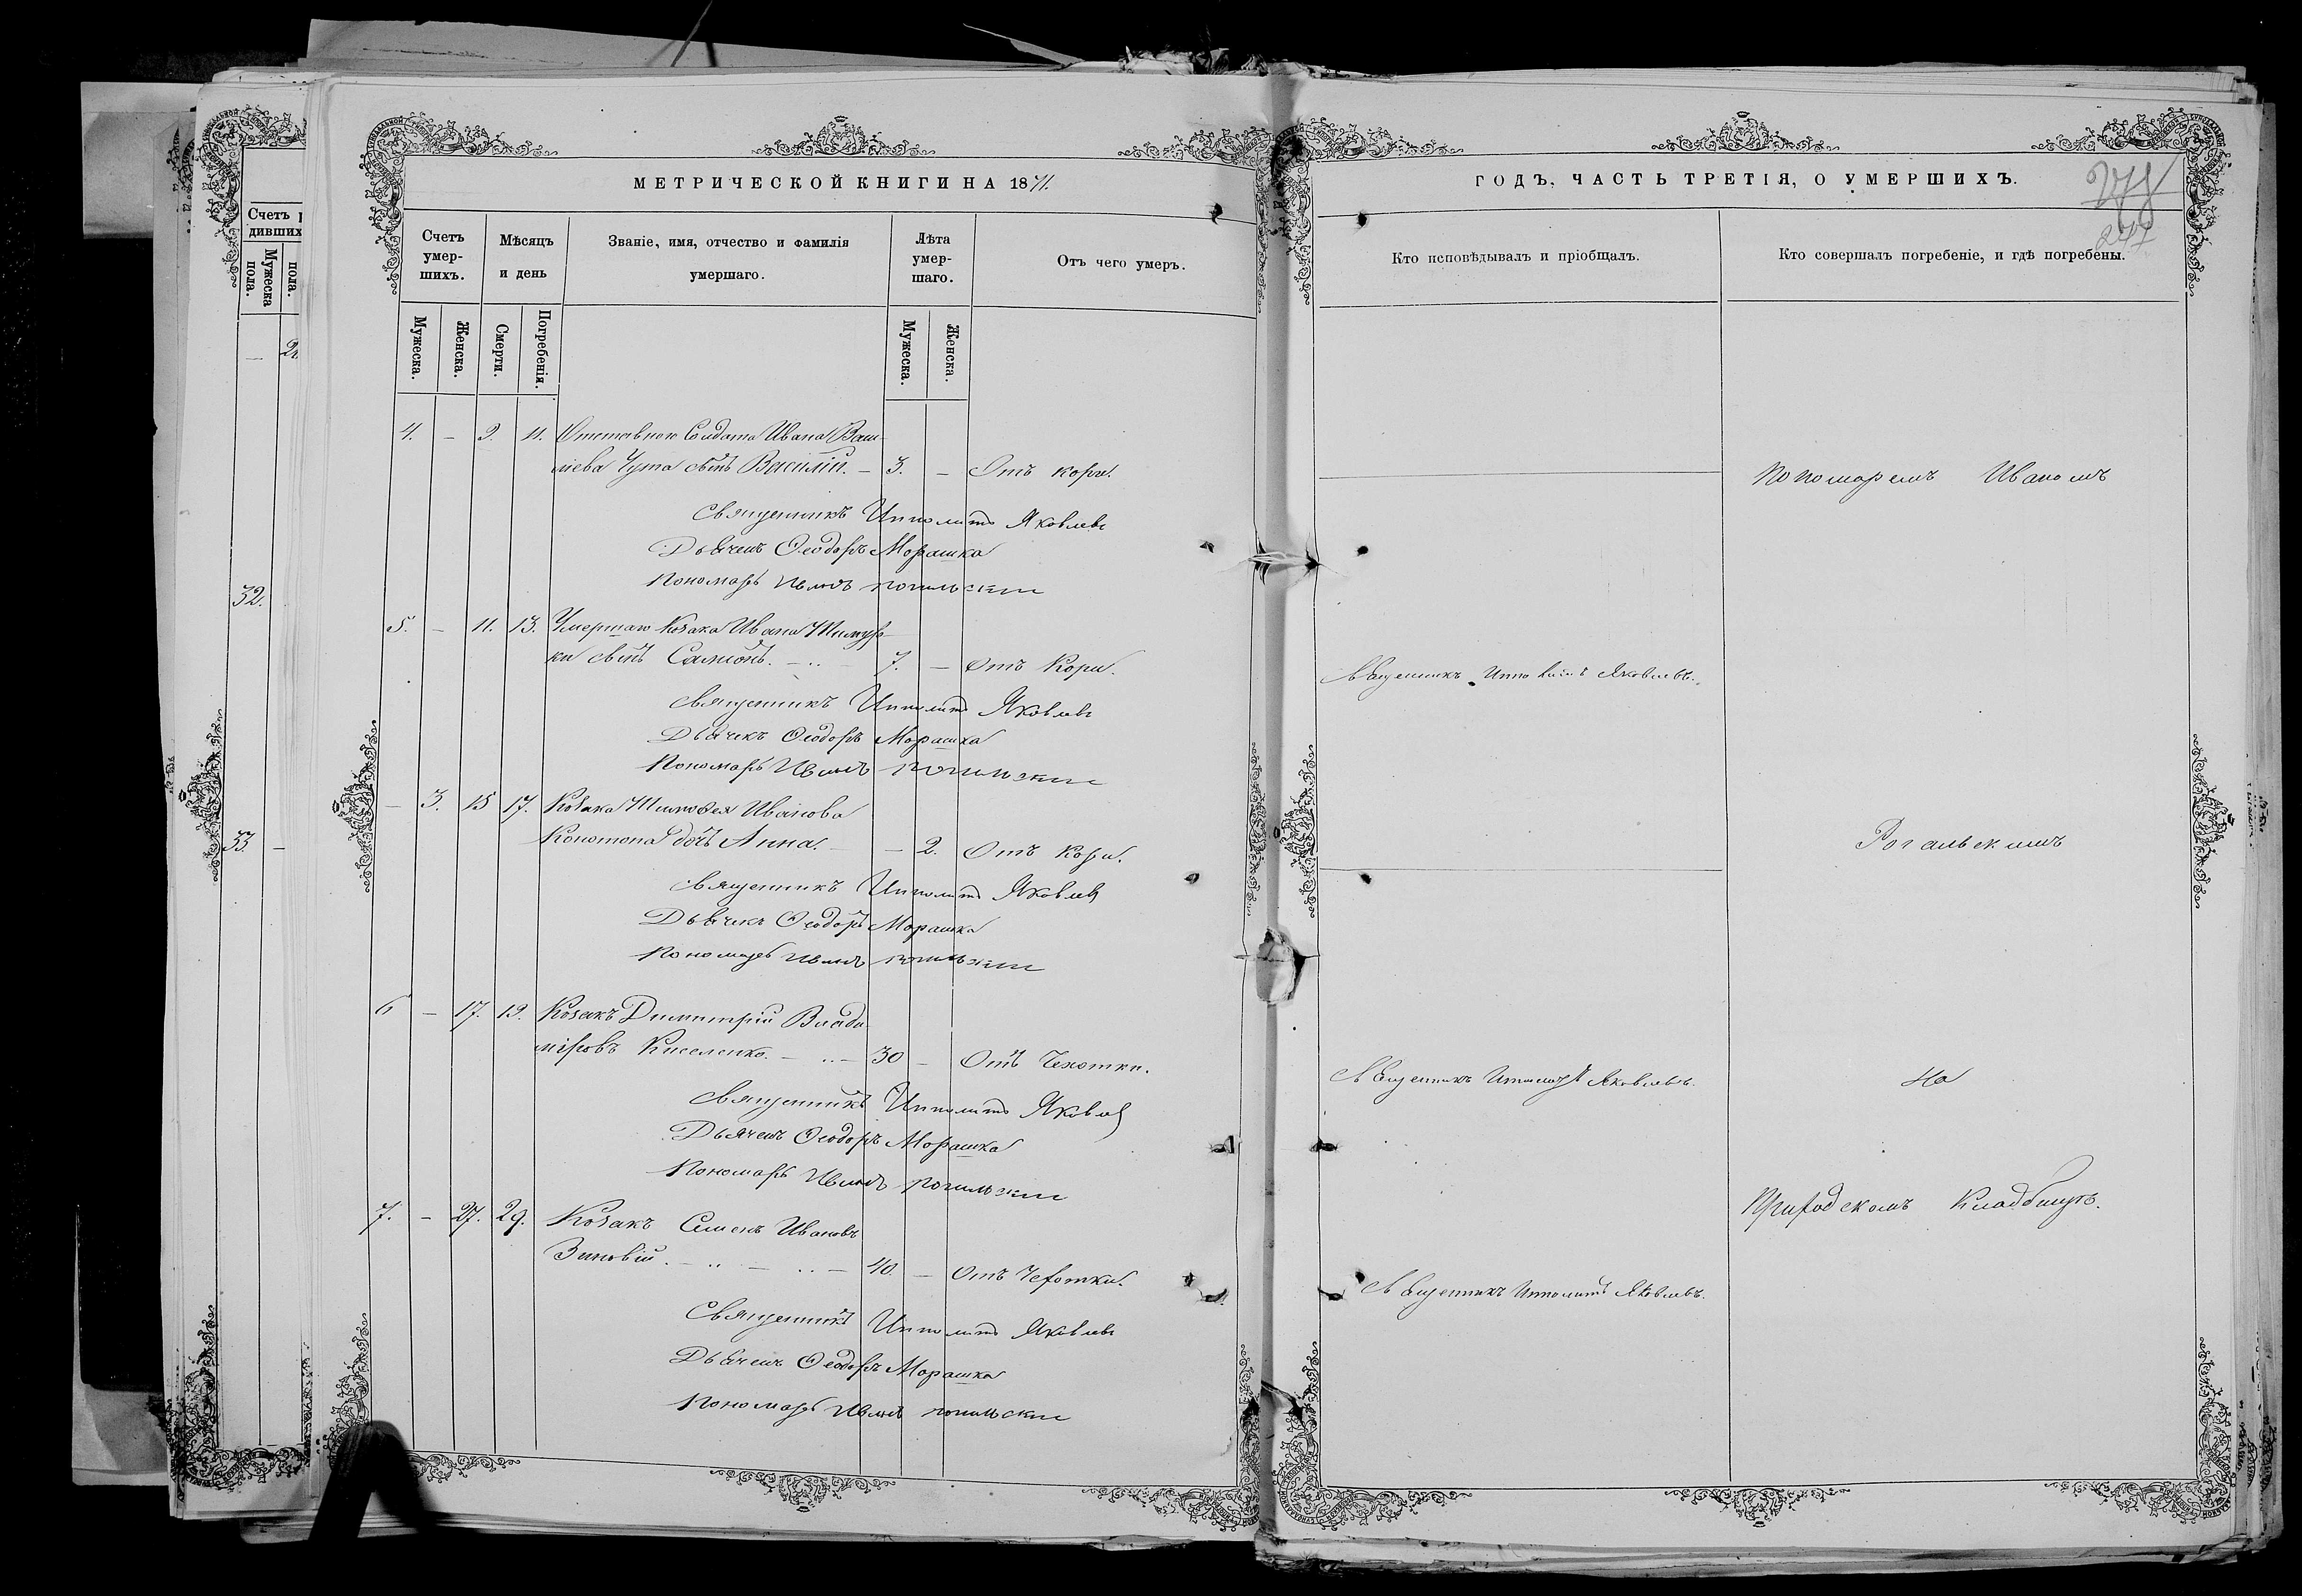 Счетъ р
дившихъ
Мужеска
пола.
пола.
2
32.
33.
МЕТРИЧЕСКОЙ КНИГИ НА 1871.
Счетъ
умер-
шихъ.
Мѣсяцъ
и день
Званіе, имя, отчество и фамилія
умершаго.
Лѣта
умер-
шаго.
Отъ чего умеръ.
Мужеска.
Женска.
Смерти.
Погребенія.
Мужеска.
Женска.
4. – 9. 11. Отставного Солдата Ивана Васи-
лiева Чута сынъ Василій. – 3. – Отъ кори.
Священникъ Ипполитъ Яковлевъ
Дьячекъ Ѳеодоръ Морашка
Пономарь Иванъ Рогальскій
5. – 11. 13. Умершаго Козака Ивана
ки сынъ 7. – Отъ Кори.
Священникъ Ипполитъ Яковлевъ
Дьячекъ Ѳеодоръ Морашка
Пономарь Иванъ Рогальскій
– 3. 15 17. Козака Тимоѳея Иванова
Конотопа дочь Анна. – – 2. Отъ Кори.
Священникъ Ипполитъ Яковлевъ
Дьячекъ Ѳеодоръ Морашка
Пономарь Иванъ Рогальскій
6 – 17. 19. Козакъ Димитрій Влади
міровъ Киселенко. – 30 – Отъ Чехотки.
Священникъ Ипполитъ Яковлевъ
Дьячекъ Ѳеодоръ Морашка
Пономарь Иванъ Рогальскій
7. – 27. 29. Козакъ Семенъ Ивановъ
Зиновій. – 40. – Отъ Чехотки.
Священникъ Ипполитъ Яковлевъ
Дьячекъ Ѳеодоръ Морашка
Пономарь Иванъ Рогальскій
ГОДЪ, ЧАСТЬ ТРЕТІЯ, О УМЕРШИХЪ.
Кто исповѣдывалъ и пріобщалъ.
Кто совершалъ погребеніе, и гдѣ погребены.
Пономаремъ Иваномъ
Священникъ Ипполитъ Яковлевъ.
Рогальскимъ
Священникъ Ипполитъ Яковлевъ.
на
Приходскомъ Кладбищѣ.
Священникъ Ипполитъ Яковлевъ.